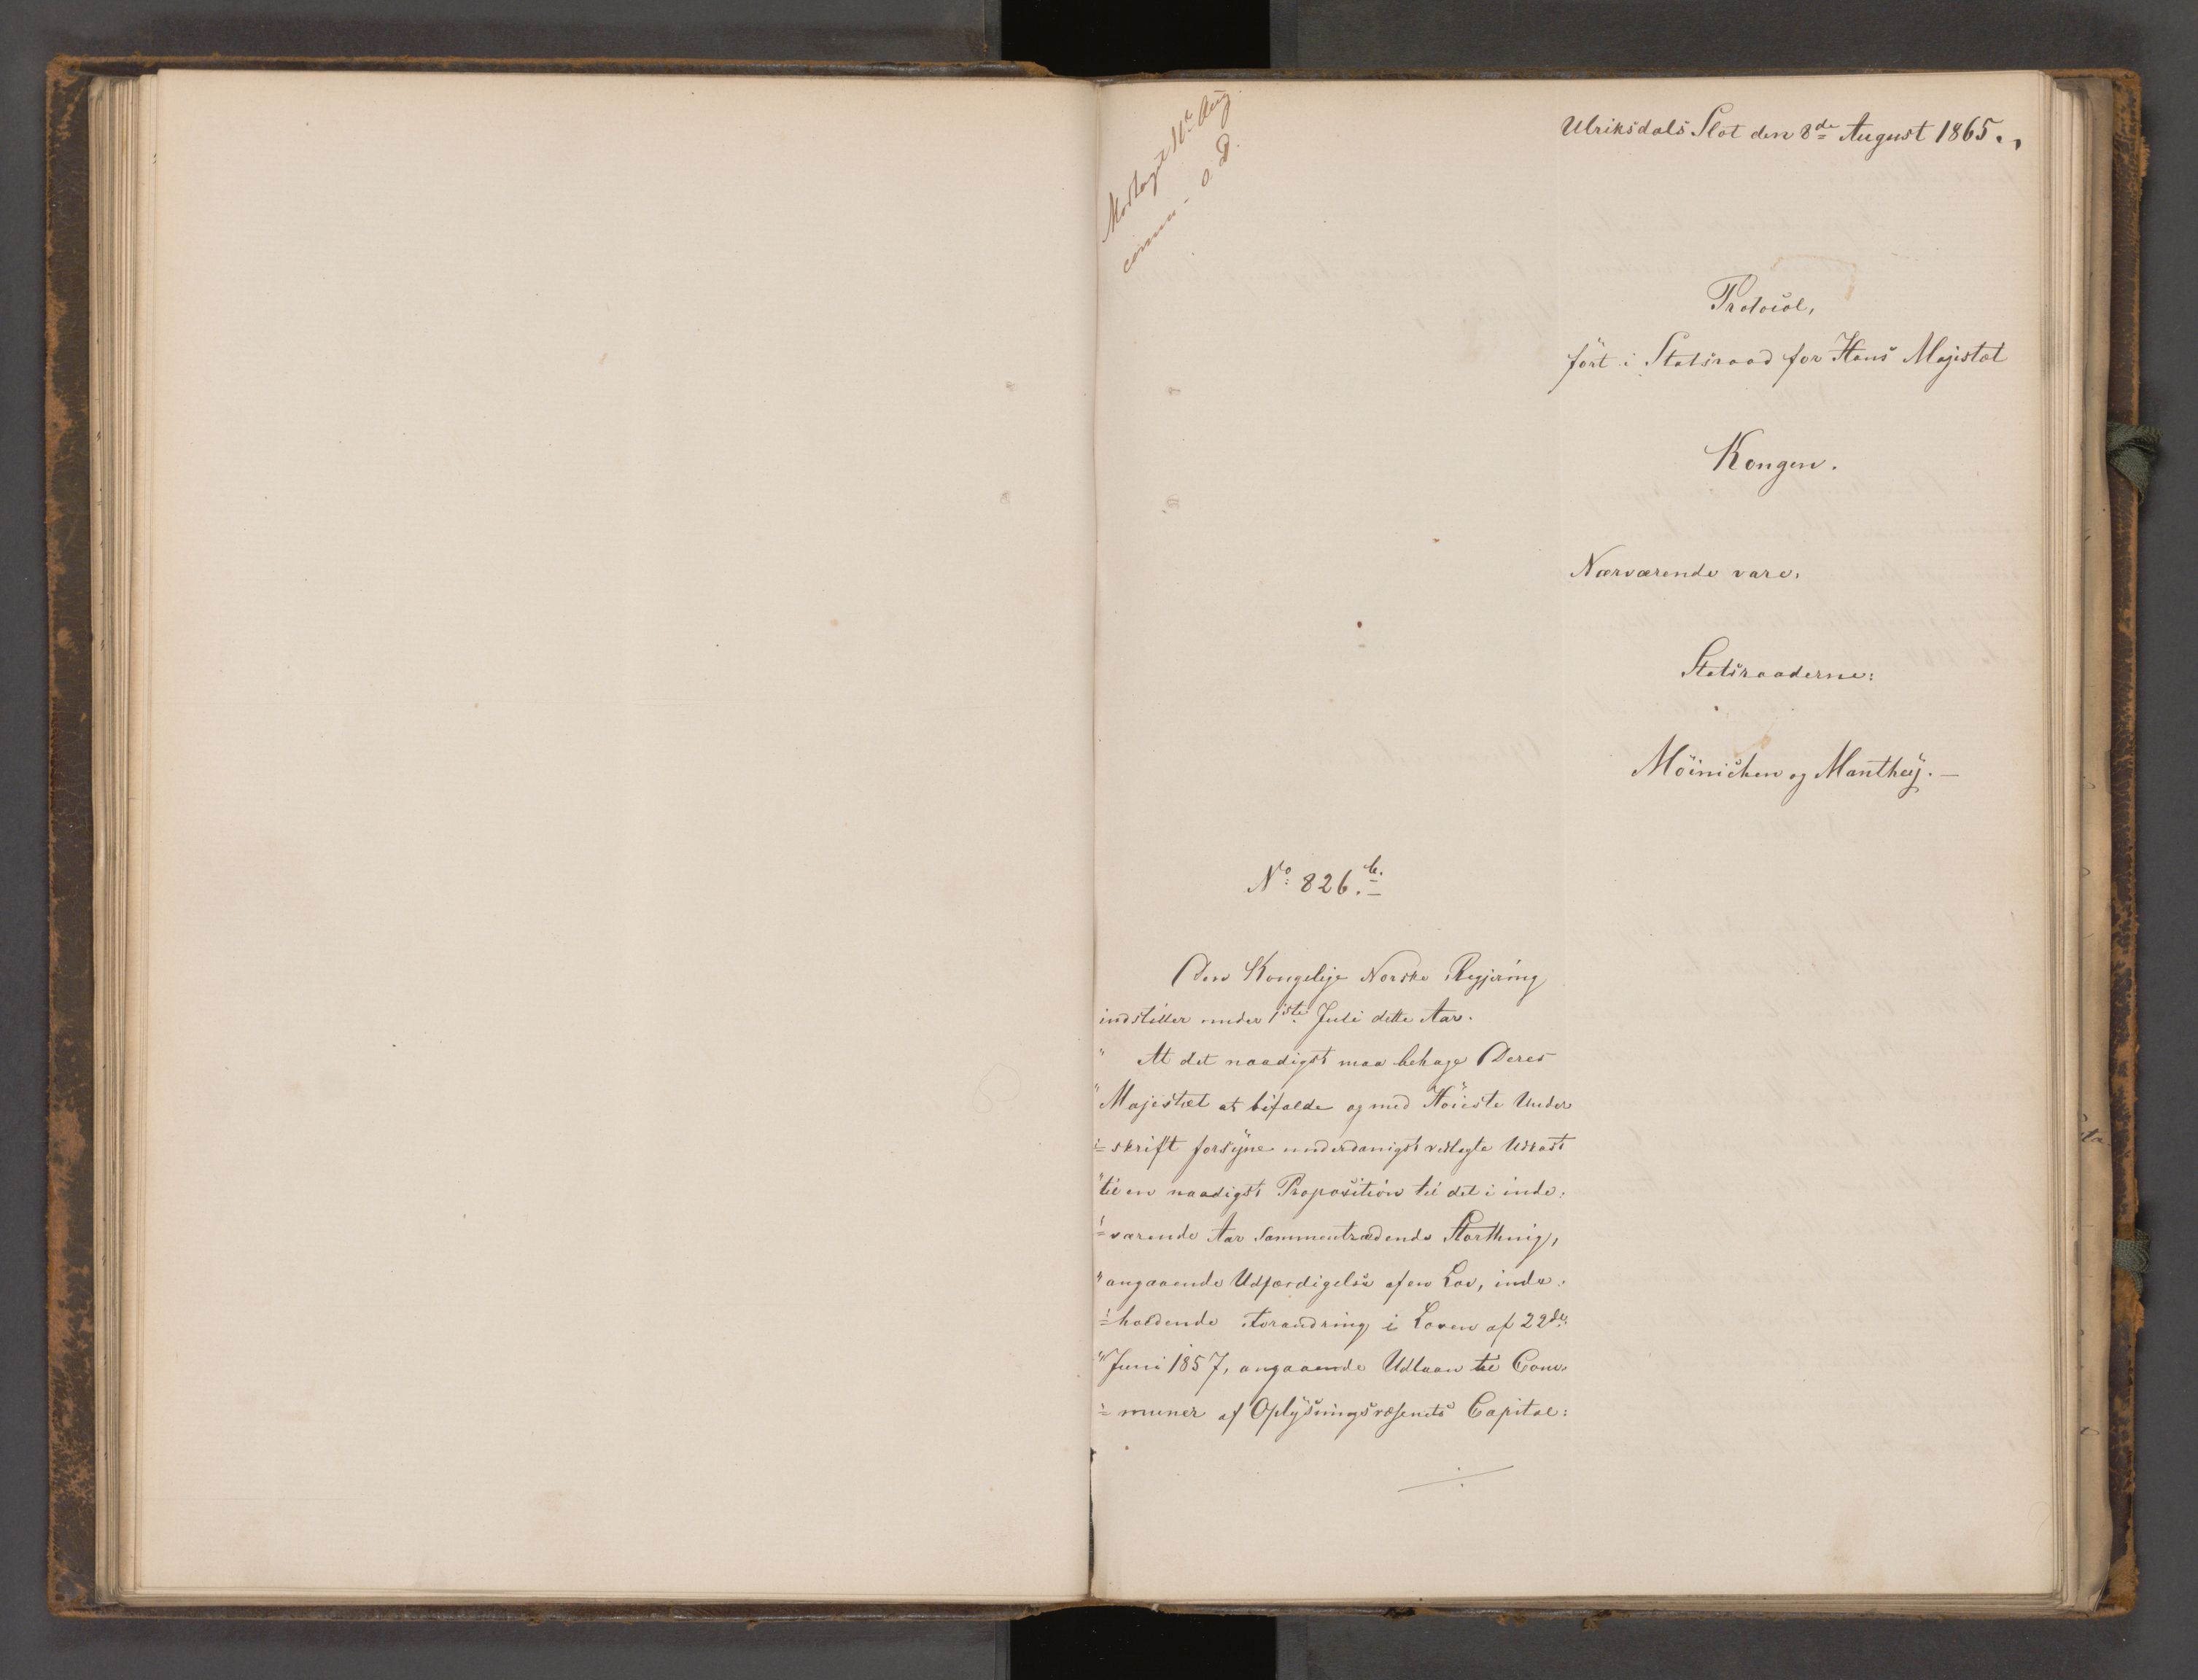 Modtaget 16de Aug.
Ulriksdals Slot den 8de August 1865.
Protocol,
fört i Statsraad for Hans Majestæt
Kongen.
Nærværende vare,
Statsraaderne:
Möinichen og Manthey. —
No: 826. b.
Den Kongelige Norske Regjering
indstiller under 1ste Juli dette Aar.
" At det naadigst maa behage Deres
" Majestæt at bifalde og med Höieste Under
"= skrift forsÿne underdanigst vedlagte Udkast
" til en naadigst Proposition til det i inde:
"= værende Aar sammentrædende Storthing,
" angaaende Udfærdigelse af en Lov, inde:
"= holdende Forandring i Loven af 22de
" Juni 1857, angaaende Udlaan til Com:
"= muner af Oplÿsningsvæsenets Capital: